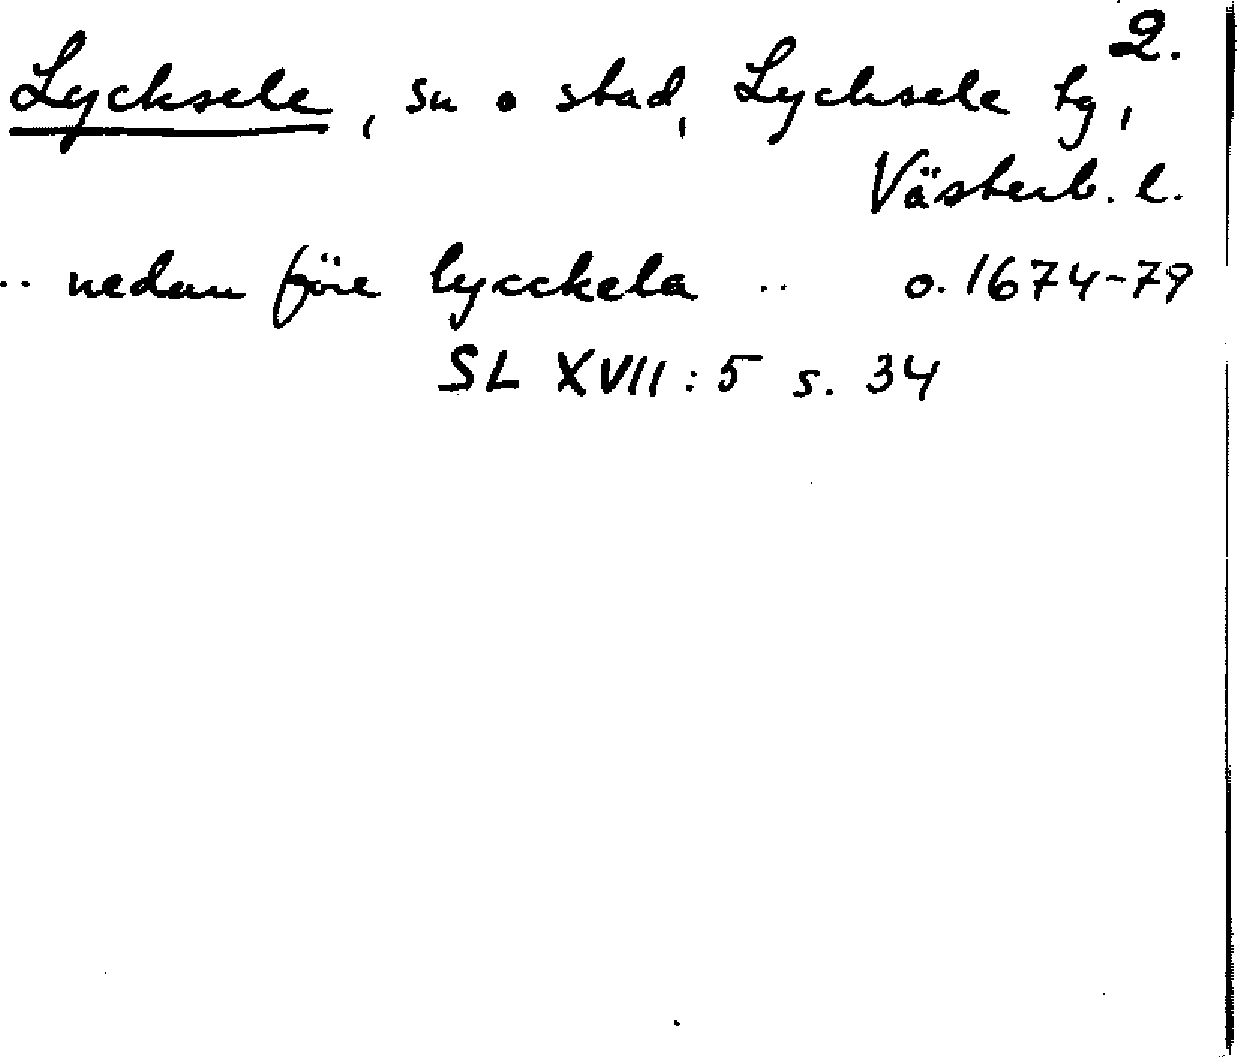 2.
Lycksele, sn o stad, Lycksele tg,
Västerb. l.
.. nedan före lycckela .. o. 1674-79
SL XVII:5 s. 34